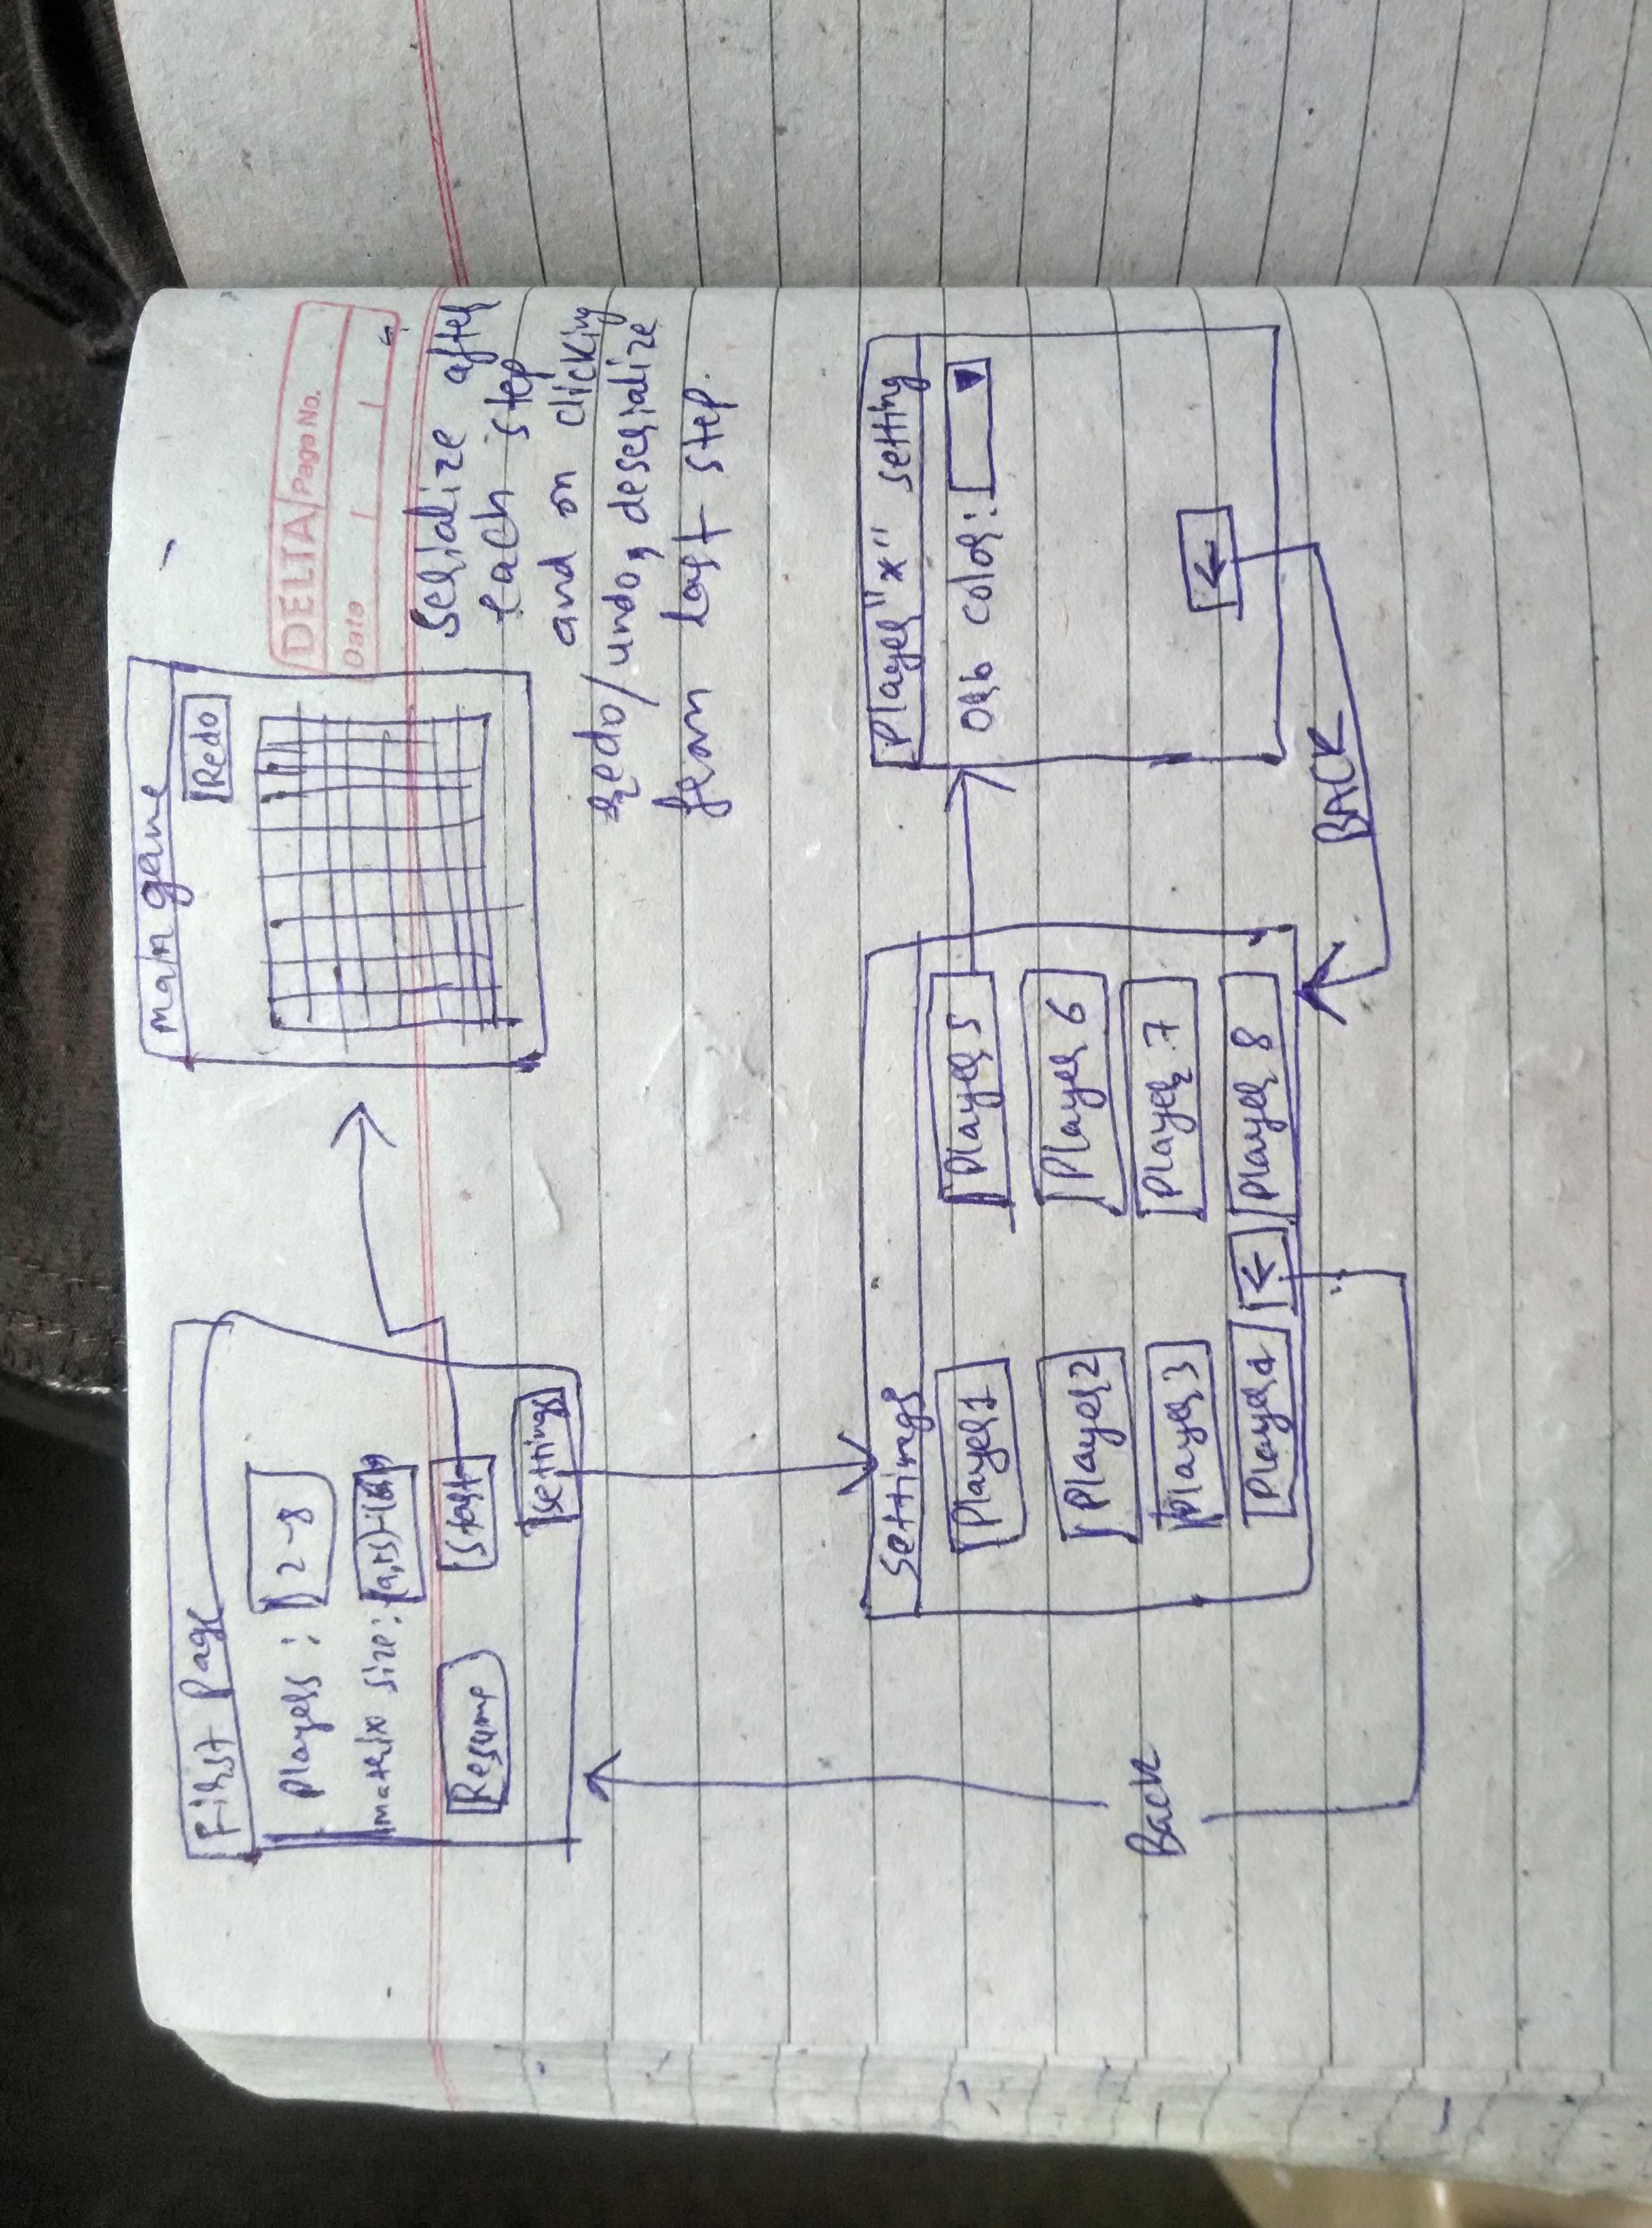 First Page
Players : 2-8
matrix size:
Resume
Start
Settings
Main game
Redo
DELTA Page No.
Date
Serialize after
each step
and on clicking
redo/undo, deserialize
from last step.
Settings
Player 1
Player 5
Player 2
Player 6
Player 3
Player 7
Player 4
←
Player 8
Player "x" setting
Orb color:
←
BACK
Back